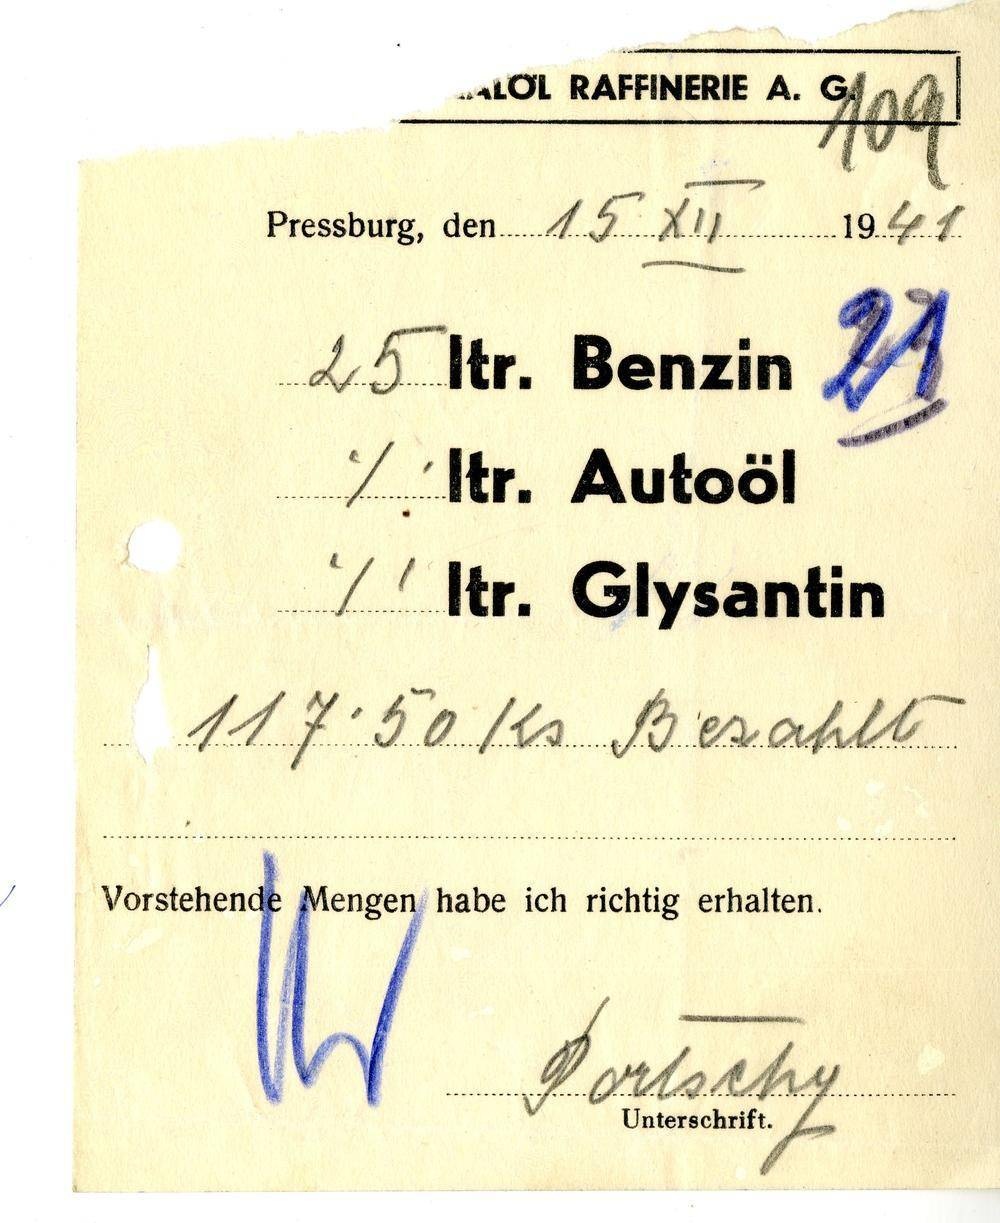 RAFFINERIE A. G.
109
Pressburg, den 15 XII 1941
25 ltr. Benzin
21
ltr. Autoöl
ltr. Glysantin
117·50 Ks Bezahlt
Vorstehende Mengen habe ich richtig erhalten.
Portschy
Unterschrift.